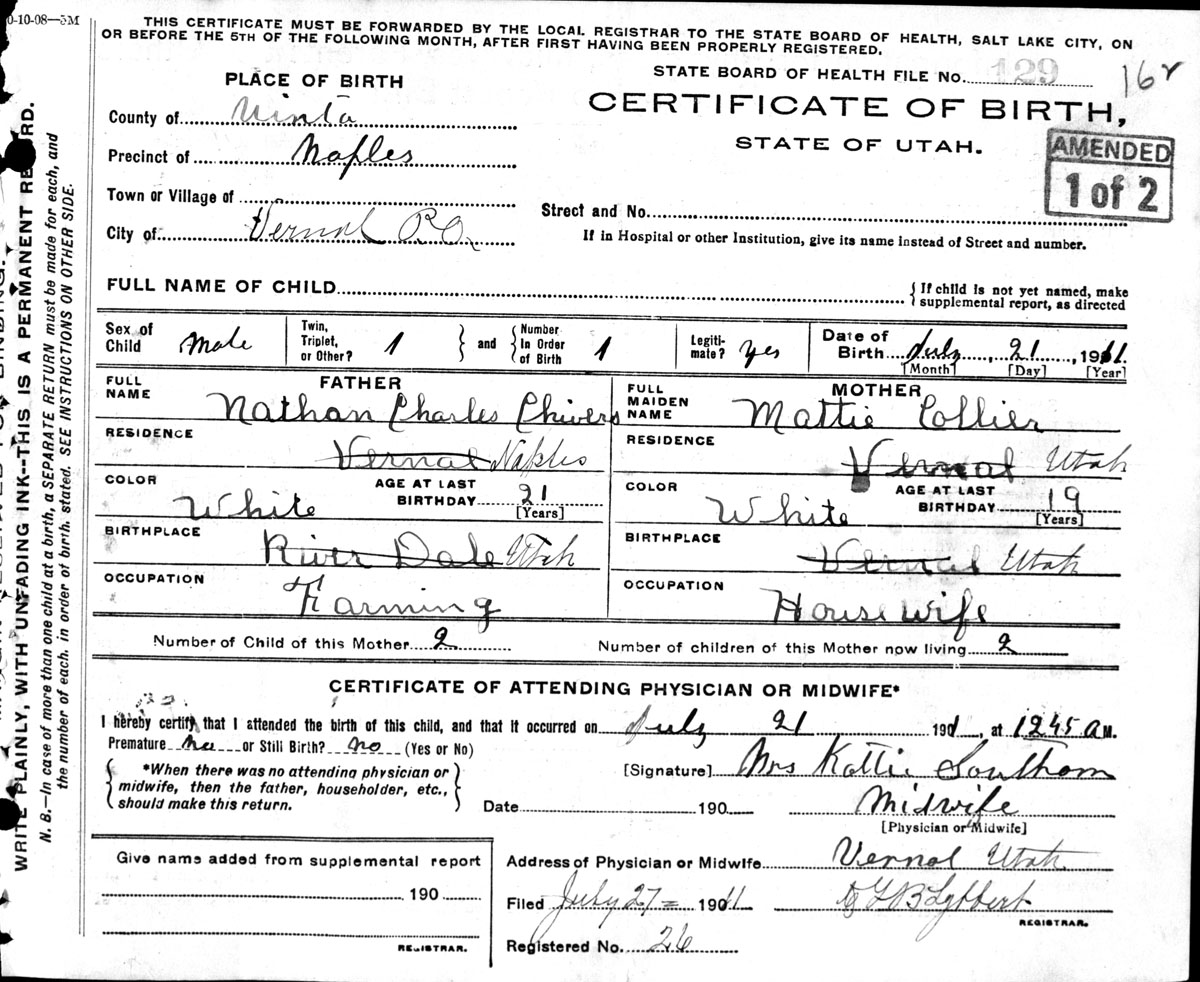 0-10-08—5M
THIS CERTIFICATE MUST BE FORWARDED BY THE LOCAL REGISTRAR TO THE STATE BOARD OF HEALTH, SALT LAKE CITY, ON
OR BEFORE THE 5TH OF THE FOLLOWING MONTH, AFTER FIRST HAVING BEEN PROPERLY REGISTERED.
STATE BOARD OF HEALTH FILE No. 129
PLACE OF BIRTH
CERTIFICATE OF BIRTH,
STATE OF UTAH.
AMENDED
1 of 2
County of Uinta
Precinct of Naples
Town or Village of
City of Vernal P.O.
Street and No.
If in Hospital or other Institution, give its name instead of Street and number.
FULL NAME OF CHILD
{ If child is not yet named, make
supplemental report, as directed
Sex of Child Male Twin, Triplet, or Other? 1 } and { Number In Order of Birth 1 Legiti-mate? yes Date of Birth July, 21, 1911.
[Month] [Day] [Year]
FULL NAME FATHER Nathan Charles Chivers
FULL MAIDEN NAME MOTHER Mattie Collier
RESIDENCE Vernal Naples
RESIDENCE Vernal Utah
COLOR White AGE AT LAST BIRTHDAY 21 [Years]
COLOR White AGE AT LAST BIRTHDAY 19 [Years]
BIRTHPLACE River Dale Utah
BIRTHPLACE Vernal Utah
OCCUPATION Farming
OCCUPATION House wife
Number of Child of this Mother 2 Number of children of this Mother now living 2
CERTIFICATE OF ATTENDING PHYSICIAN OR MIDWIFE*
I hereby certify that I attended the birth of this child, and that it occurred on July 21 1901, at 1245 A M.
Premature no or Still Birth? no (Yes or No)
{ *When there was no attending physician or
midwife, then the father, householder, etc.,
should make this return. }
[Signature] Mrs Kattie Southam
Date 190 Midwife
[Physician or Midwife]
Give name added from supplemental report
190
REGISTRAR.
Address of Physician or Midwife Vernal Utah
Filed July 27 = 1911 Lybbert
REGISTRAR.
Registered No. 26
WRITE PLAINLY, WITH UNFADING INK--THIS IS A PERMANENT RECORD.
N. B.—In case of more than one child at a birth, a SEPARATE RETURN must be made for each, and
the number of each, in order of birth, stated. SEE INSTRUCTIONS ON OTHER SIDE.